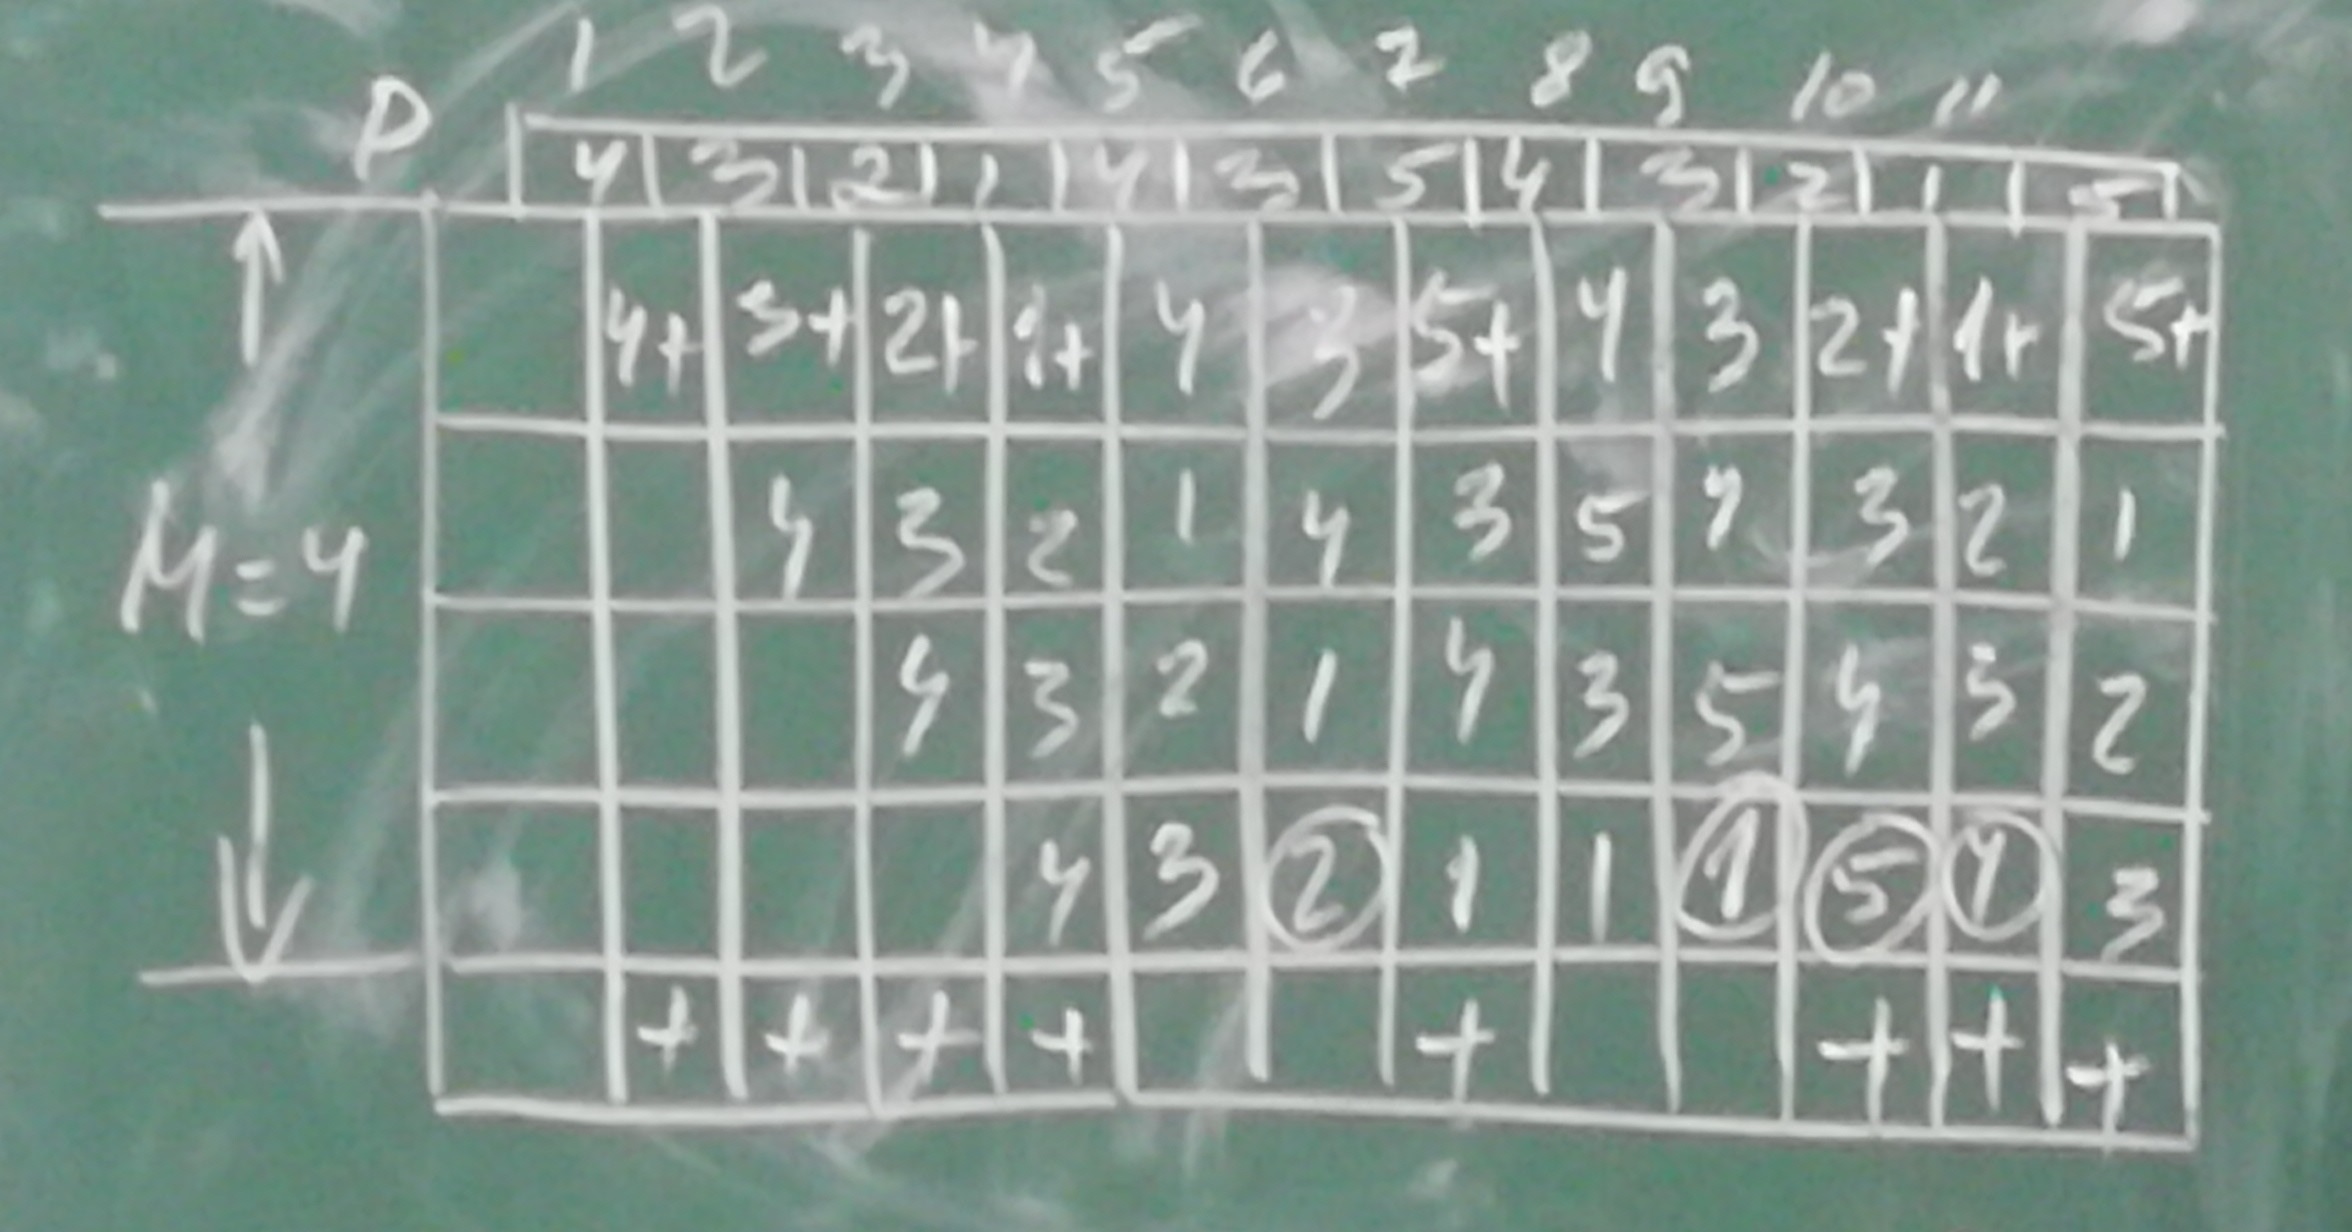 1 2 3 4 5 6 7 8 9 10 11
P 4 3 2 1 4 3 5 4 3 2 1 5
4+ 3+ 2+ 1+ 4 3 5+ 4 3 2+ 1+ 5+
4 3 2 1 4 3 5 4 3 2 1
M=4
4 3 2 1 4 3 5 4 3 2
4 3 2 1 1 1 5 4 3
+ + + + + + + +